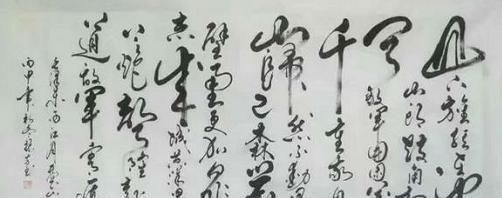 山下旌旗在
山头鼓角相
闻敌军围困万
千重我自
岿然不动
早已森严
壁垒更加众
志成城黄洋界
上炮声隆报
道敌军宵遁
毛泽东词西江月井冈山
丙申年